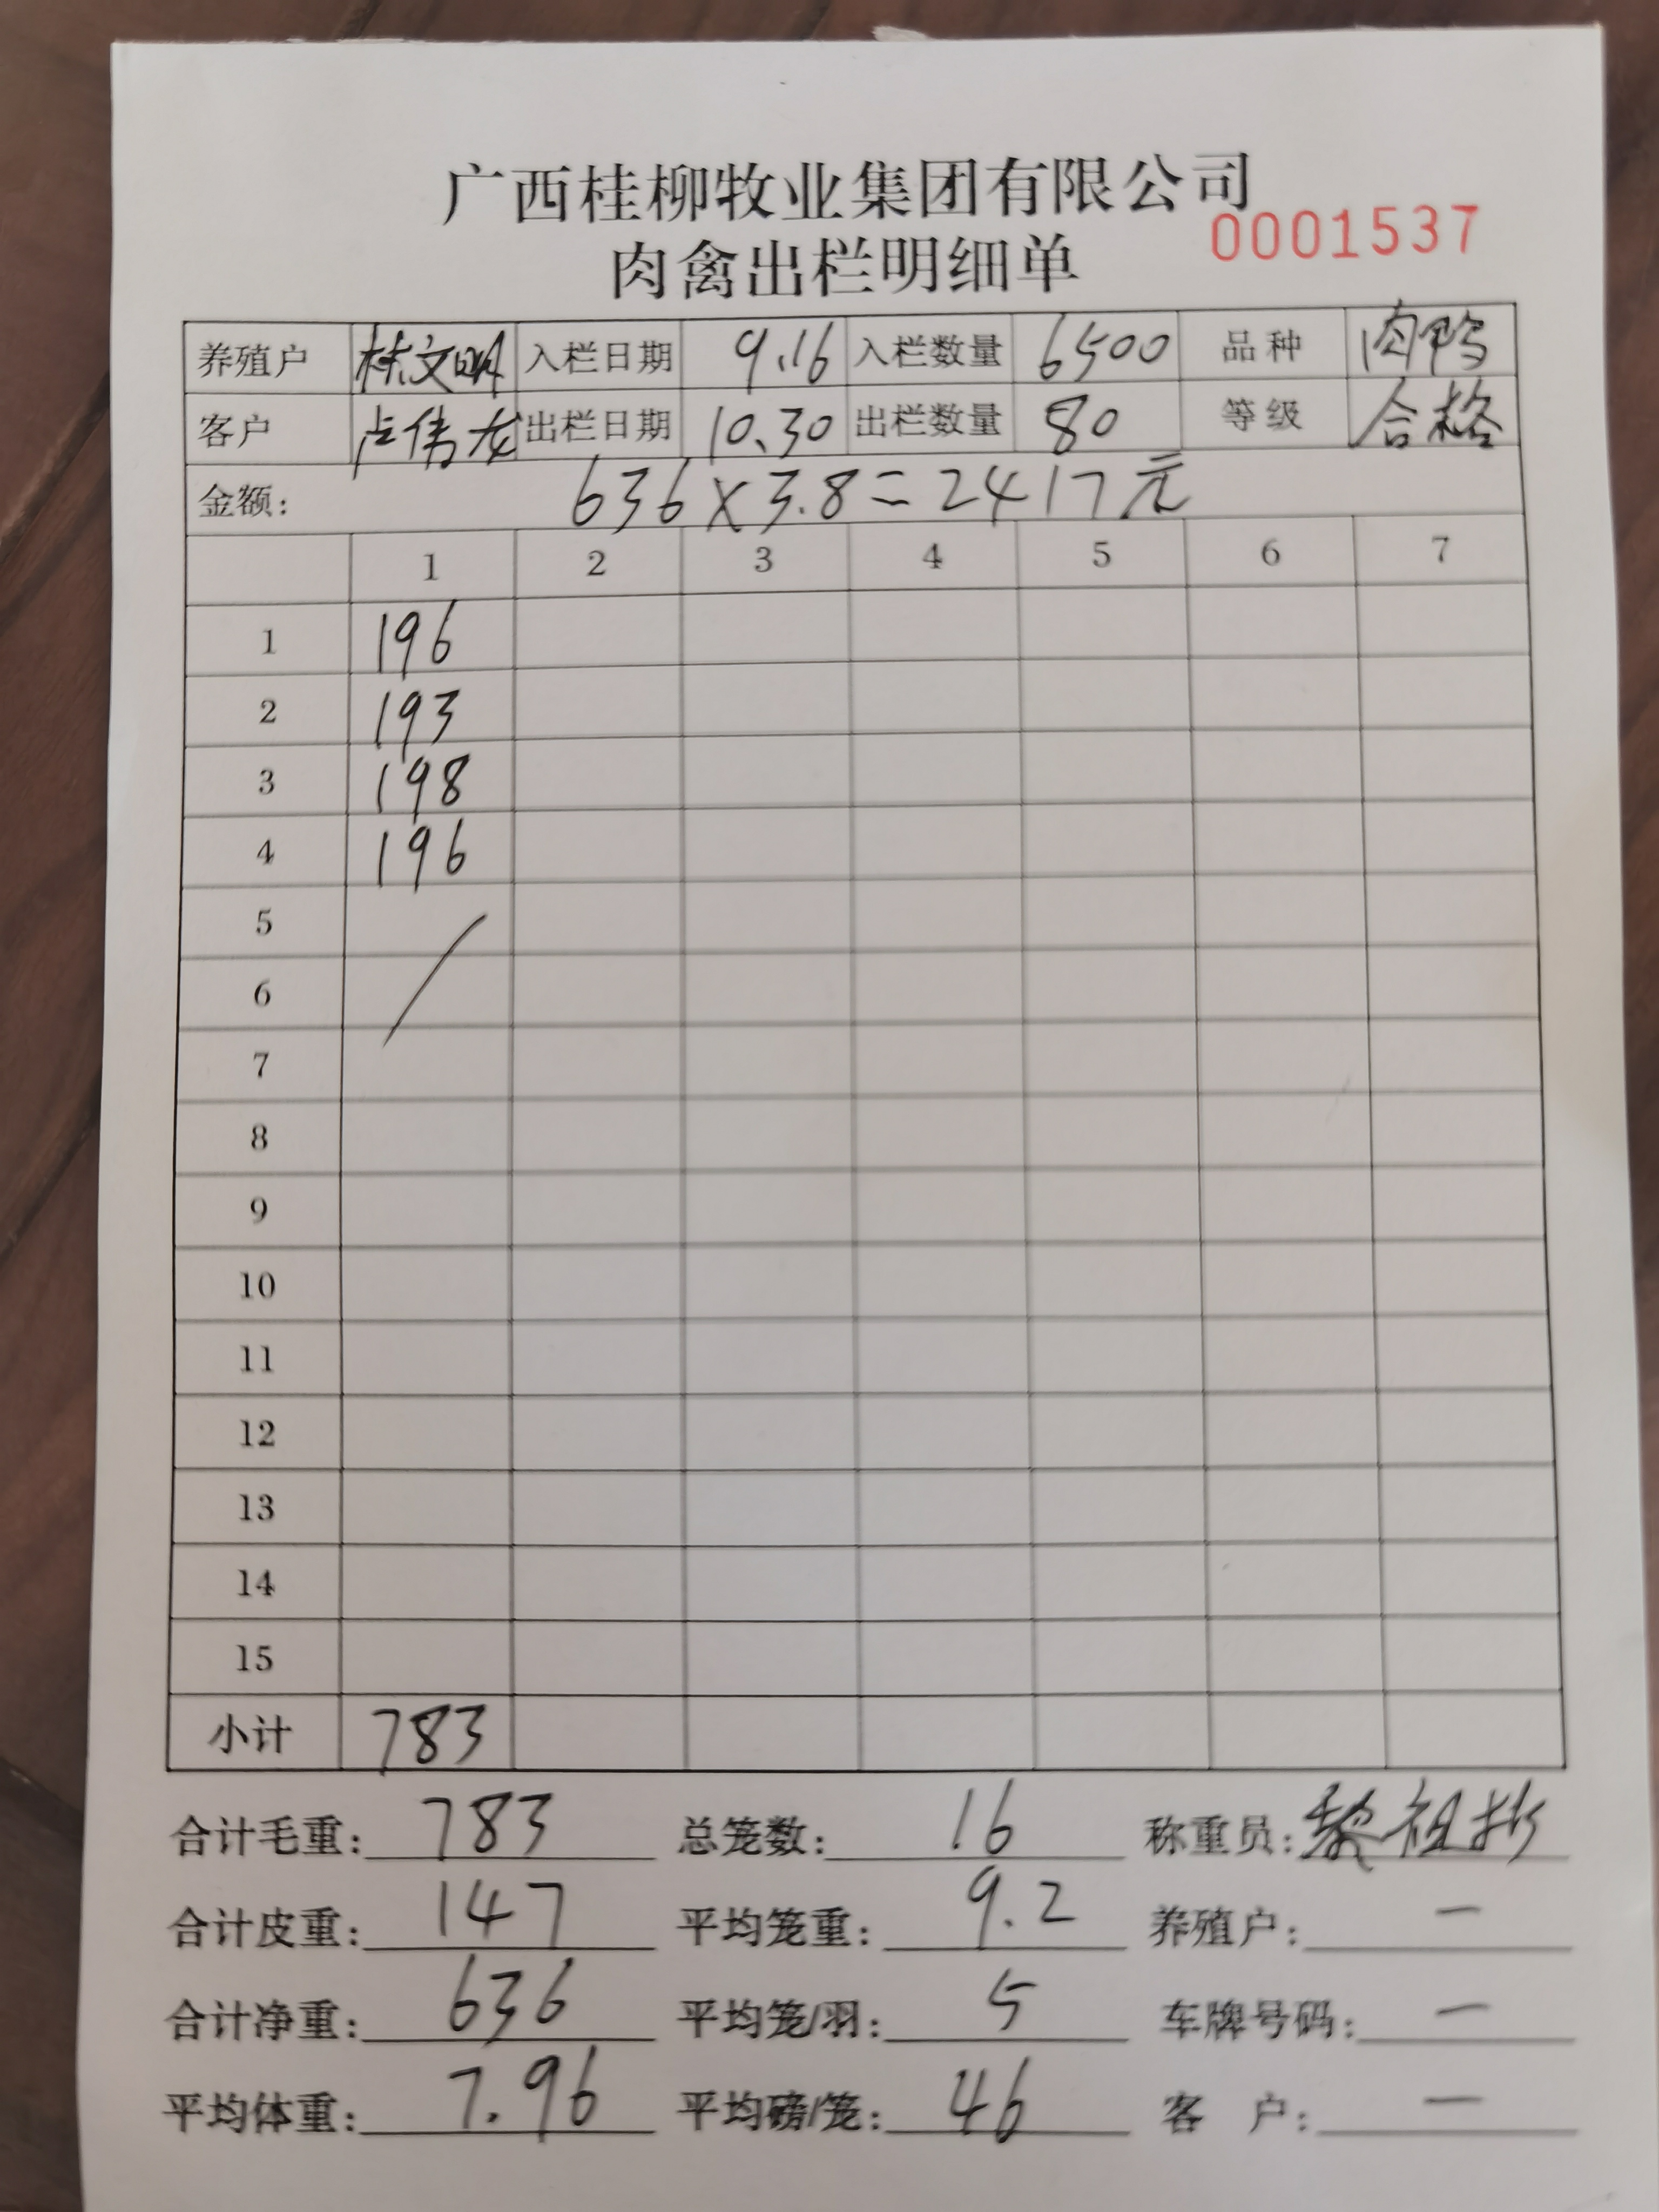 广西桂柳牧业集团有限公司
0001537
肉禽出栏明细单
养殖户 林文明 入栏日期 9.16 入栏数量 6500 品种 肉鸭
客户 卢伟龙 出栏日期 10.30 出栏数量 80 等级 合格
金额: 636×3.8=2417元
1 2 3 4 5 6 7
1 196
2 193
3 198
4 196
5
6
7
8
9
10
11
12
13
14
15
小计 783
合计毛重: 783 总笼数: 16 称重员: 黎祖彬
合计皮重: 147 平均笼重: 9.2 养殖户: 一
合计净重: 636 平均笼/羽: 5 车牌号码: 一
平均体重: 7.96 平均磅/笼: 46 客 户: 一